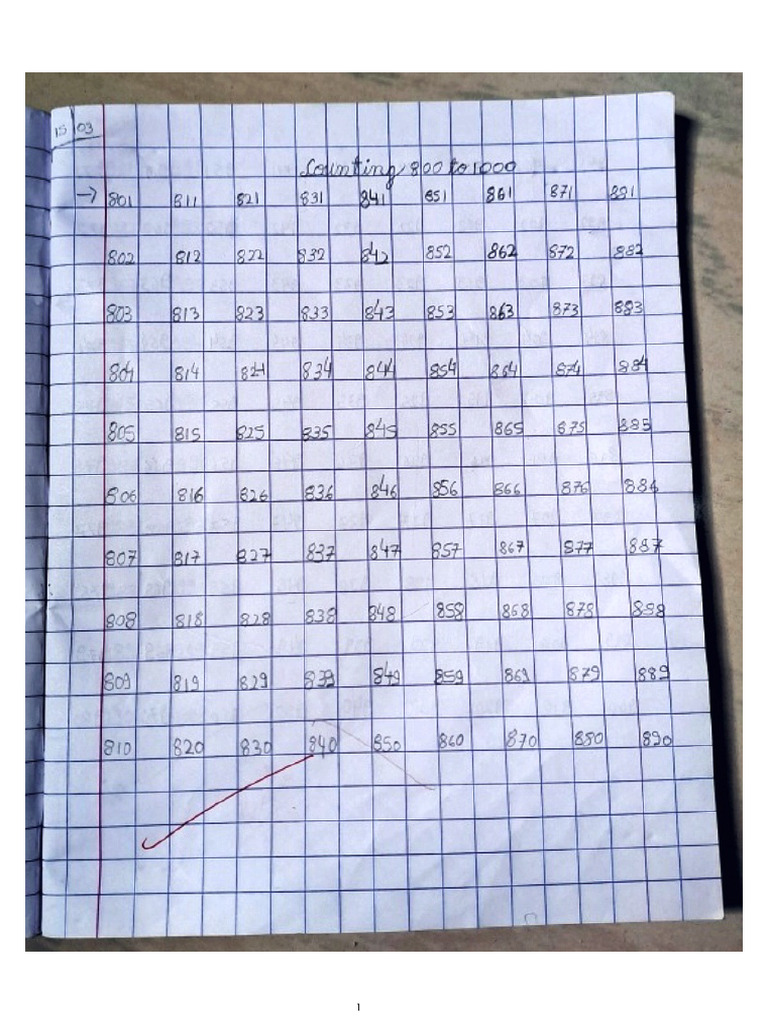 15 03
Counting 800 to 1000
→ 801 811 821 831 841 851 861 871 881
802 812 822 832 842 852 862 872 882
803 813 823 833 843 853 863 873 883
804 814 824 834 844 854 864 874 884
805 815 825 835 845 855 865 875 885
806 816 826 836 846 856 866 876 886
807 817 827 837 847 857 867 877 887
808 818 828 838 848 858 868 878 888
809 819 829 839 849 859 869 879 889
810 820 830 840 850 860 870 880 890
1